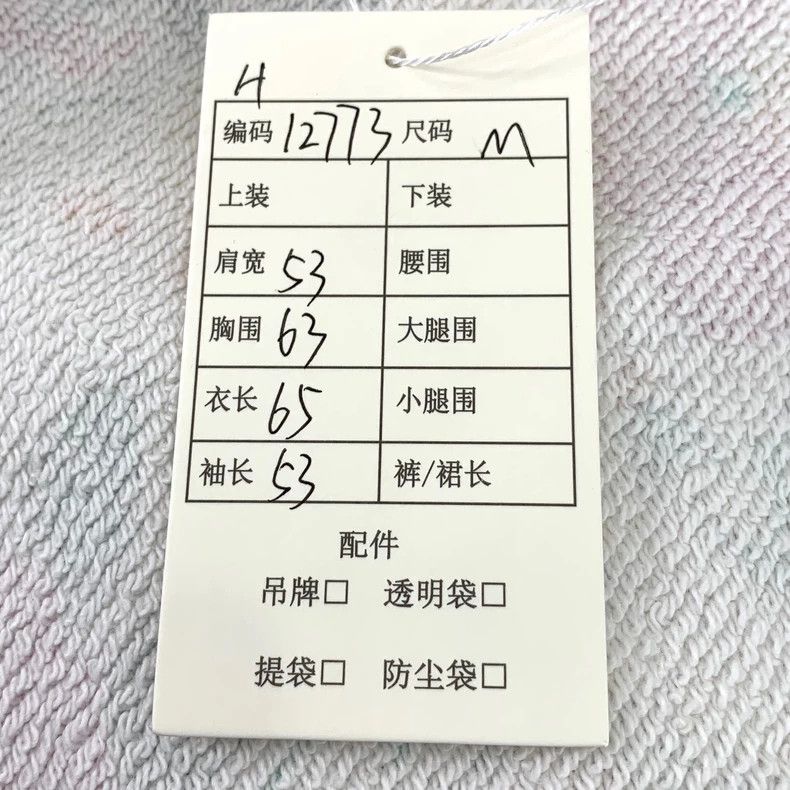 H
编码 12773 尺码 M
上装 下装
肩宽 53 腰围
胸围 63 大腿围
衣长 65 小腿围
袖长 53 裤/裙长
配件
吊牌□ 透明袋□
提袋□ 防尘袋□